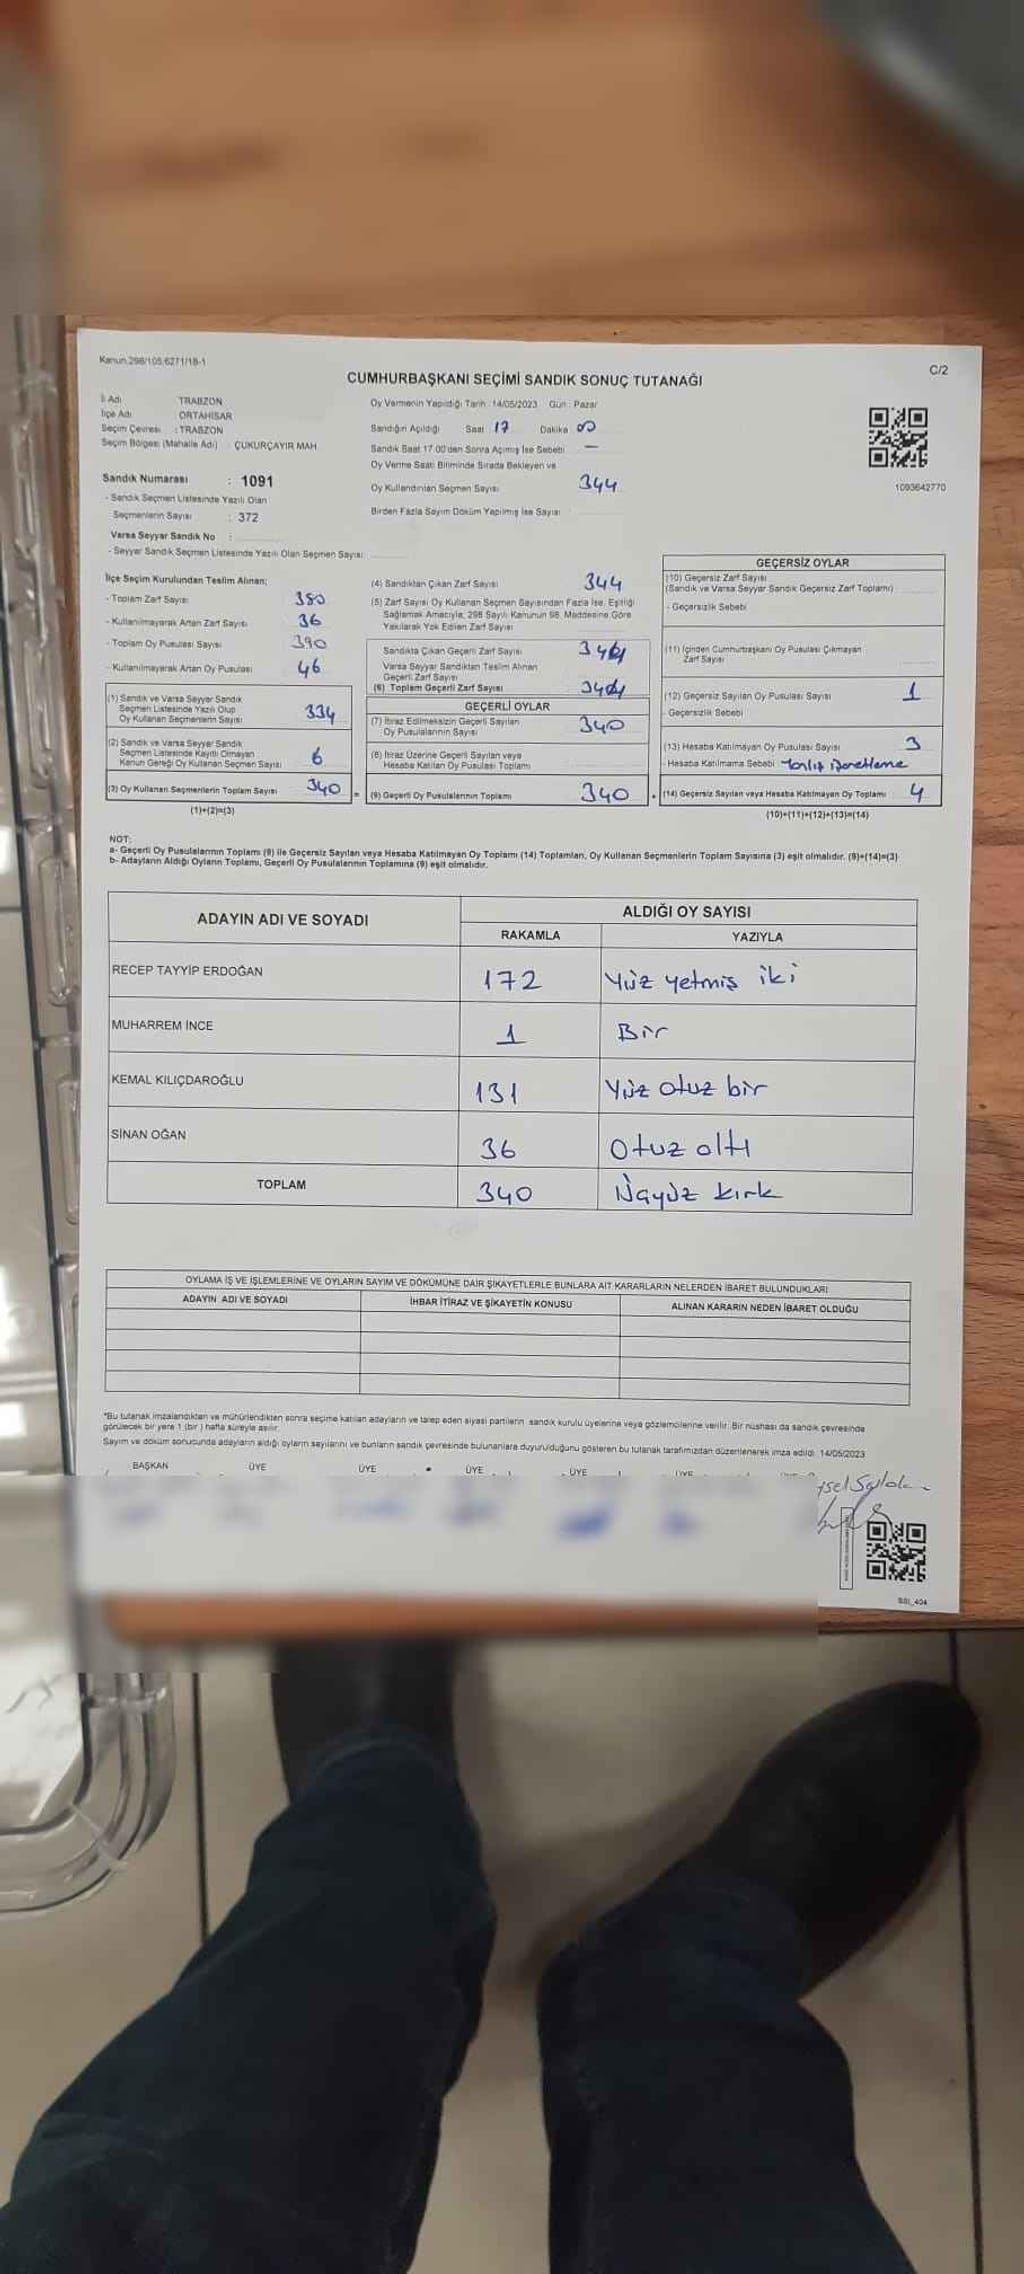 Kanun.298/105.6271/18-1
C/2
CUMHURBAŞKANI SEÇİMİ SANDIK SONUÇ TUTANAĞI
İl Adı TRABZON
İlçe Adı ORTAHİSAR
Seçim Çevresi : TRABZON
Seçim Bölgesi (Mahalle Adı) : ÇUKURÇAYIR MAH.
Sandık Numarası : 1091
- Sandık Seçmen Listesinde Yazılı Olan
Seçmenlerin Sayısı : 372
Varsa Seyyar Sandık No :
- Seyyar Sandık Seçmen Listesinde Yazılı Olan Seçmen Sayısı:
Oy Vermenin Yapıldığı Tarih : 14/05/2023 Gün : Pazar
Sandığın Açıldığı Saat 17 Dakika 00
Sandık Saat 17.00'den Sonra Açılmış İse Sebebi —
Oy Verme Saati Bitiminde Sırada Bekleyen ve
Oy Kullandırılan Seçmen Sayısı 344
Birden Fazla Sayım Döküm Yapılmış İse Sayısı
1093642770
İlçe Seçim Kurulundan Teslim Alınan;
- Toplam Zarf Sayısı 380
- Kullanılmayarak Artan Zarf Sayısı 36
- Toplam Oy Pusulası Sayısı 390
- Kullanılmayarak Artan Oy Pusulası 46
(1) Sandık ve Varsa Seyyar Sandık
Seçmen Listesinde Yazılı Olup
Oy Kullanan Seçmenlerin Sayısı 334
(2) Sandık ve Varsa Seyyar Sandık
Seçmen Listesinde Kayıtlı Olmayan
Kanun Gereği Oy Kullanan Seçmen Sayısı 6
(3) Oy Kullanan Seçmenlerin Toplam Sayısı 340
(1)+(2)=(3)
(4) Sandıktan Çıkan Zarf Sayısı 344
(5) Zarf Sayısı Oy Kullanan Seçmen Sayısından Fazla İse, Eşitliği
Sağlamak Amacıyla, 298 Sayılı Kanunun 98. Maddesine Göre
Yakılarak Yok Edilen Zarf Sayısı
Sandıkta Çıkan Geçerli Zarf Sayısı 344
Varsa Seyyar Sandıktan Teslim Alınan
Geçerli Zarf Sayısı
(6) Toplam Geçerli Zarf Sayısı 344
GEÇERLİ OYLAR
(7) İtiraz Edilmeksizin Geçerli Sayılan
Oy Pusulalarının Sayısı 340
(8) İtiraz Üzerine Geçerli Sayılan veya
Hesaba Katılan Oy Pusulası Toplamı
= (9) Geçerli Oy Pusulalarının Toplamı 340
GEÇERSİZ OYLAR
(10) Geçersiz Zarf Sayısı
(Sandık ve Varsa Seyyar Sandık Geçersiz Zarf Toplamı)
- Geçersizlik Sebebi
(11) İçinden Cumhurbaşkanı Oy Pusulası Çıkmayan
Zarf Sayısı
(12) Geçersiz Sayılan Oy Pusulası Sayısı 1
- Geçersizlik Sebebi
(13) Hesaba Katılmayan Oy Pusulası Sayısı 3
- Hesaba Katılmama Sebebi Yanlış işaretleme
+ (14) Geçersiz Sayılan veya Hesaba Katılmayan Oy Toplamı 4
(10)+(11)+(12)+(13)=(14)
NOT:
a- Geçerli Oy Pusulalarının Toplamı (9) ile Geçersiz Sayılan veya Hesaba Katılmayan Oy Toplamı (14) Toplamları, Oy Kullanan Seçmenlerin Toplam Sayısına (3) eşit olmalıdır. (9)+(14)=(3)
b- Adayların Aldığı Oyların Toplamı, Geçerli Oy Pusulalarının Toplamına (9) eşit olmalıdır.
ADAYIN ADI VE SOYADI ALDIĞI OY SAYISI
RAKAMLA YAZIYLA
RECEP TAYYİP ERDOĞAN 172 Yüz yetmiş iki
MUHARREM İNCE 1 Bir
KEMAL KILIÇDAROĞLU 131 Yüz otuz bir
SİNAN OĞAN 36 Otuz altı
TOPLAM 340 Üçyüz kırk
OYLAMA İŞ VE İŞLEMLERİNE VE OYLARIN SAYIM VE DÖKÜMÜNE DAİR ŞİKAYETLERLE BUNLARA AİT KARARLARIN NELERDEN İBARET BULUNDUKLARI
ADAYIN ADI VE SOYADI İHBAR İTİRAZ VE ŞİKAYETİN KONUSU ALINAN KARARIN NEDEN İBARET OLDUĞU
*Bu tutanak imzalandıktan ve mühürlendikten sonra seçime katılan adayların ve talep eden siyasi partilerin sandık kurulu üyelerine veya gözlemcilerine verilir. Bir nüshası da sandık çevresinde
görülecek bir yere 1 (bir) hafta süreyle asılır.
Sayım ve döküm sonucunda adayların aldığı oyların sayılarını ve bunların sandık çevresinde bulunanlara duyurulduğunu gösteren bu tutanak tarafımızdan düzenlenerek imza edildi. 14/05/2023
BAŞKAN ÜYE ÜYE ÜYE ÜYE ÜYE